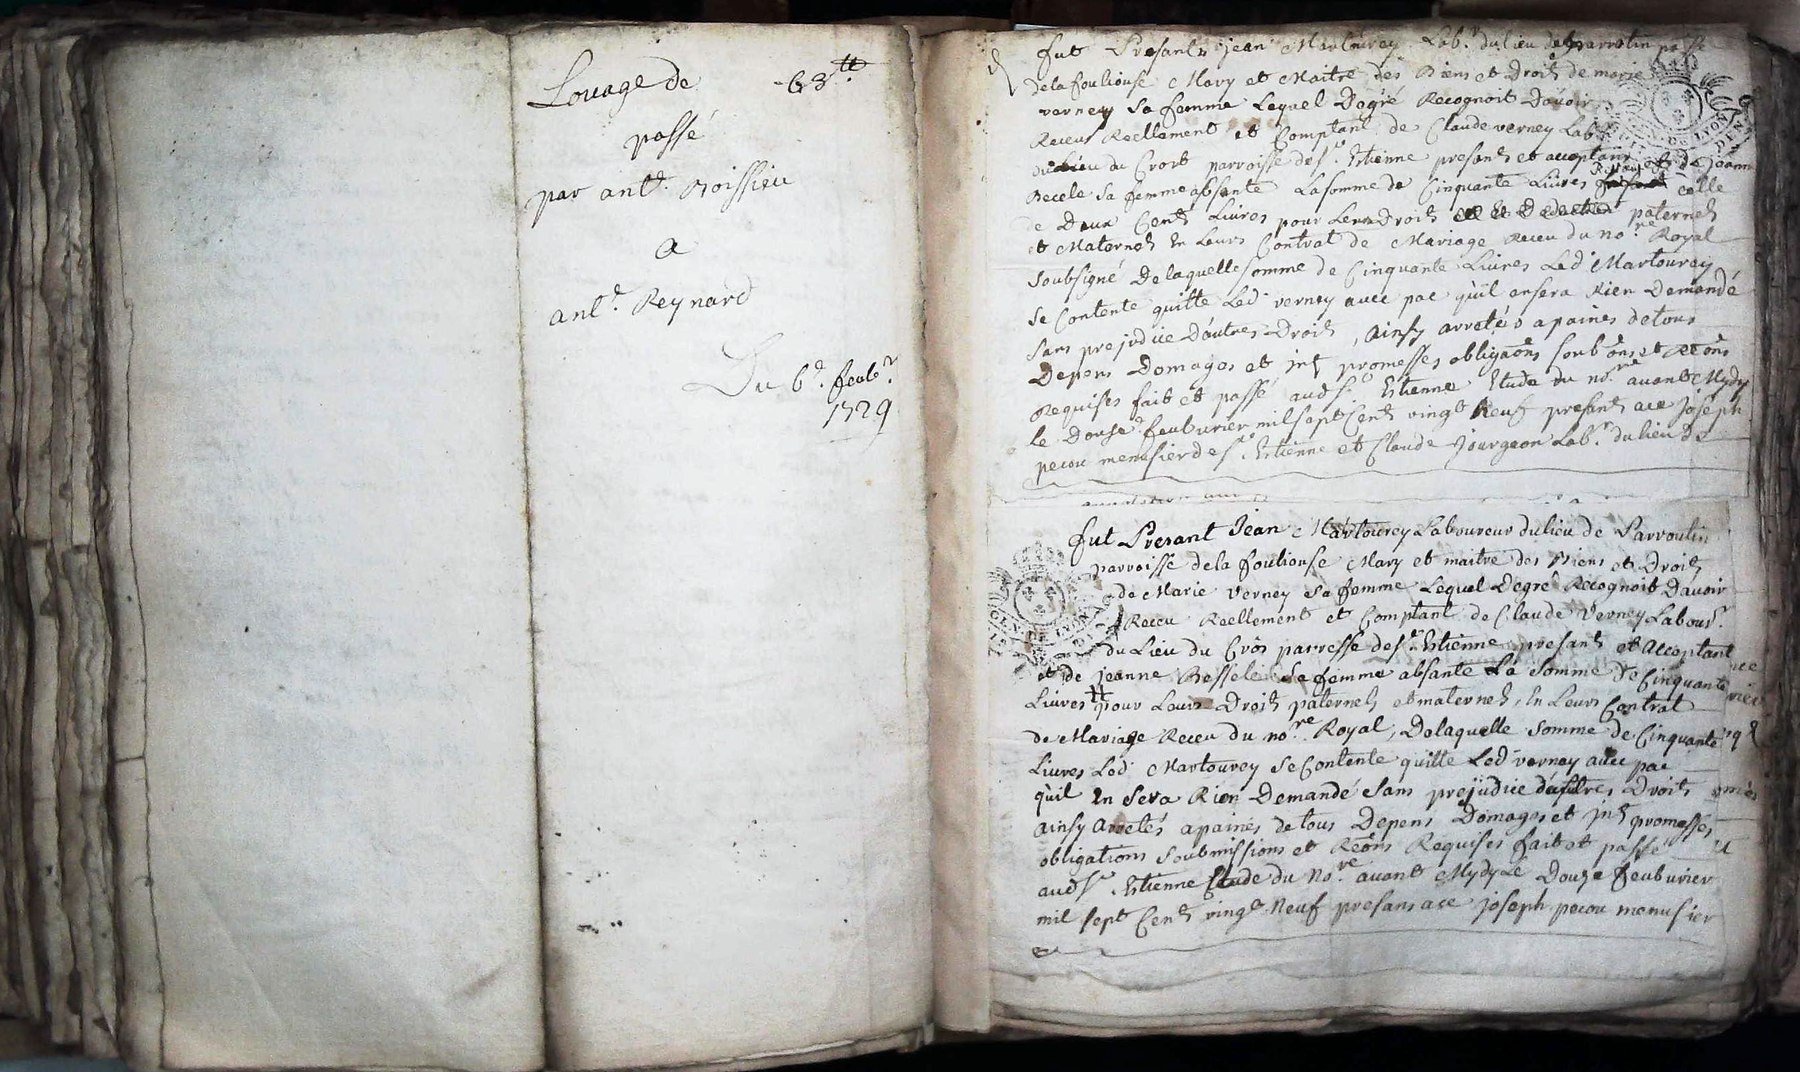 Louage de 63tt
passé
par antt. Boissieu
a
antt. Reynard
Du 6e. feubr.
1729
fut Presant jean Martourey Labr. du lieu de parrotin
dela fouliouse Mary et Maitre des Biens et Droits de marie
verney sa femme Lequel Dégré Recognoit Davoir
Receus Reellement et Comptant de Claude verney Labr
du Lieu du Crort parroisse de st. Estienne presant et acceptant et de jeanne
Becele sa femme absente La somme de Cinquante Livres celle
de Deux Cent Livres pour Leurs Droits paternels
et Maternels En Leurs Contrat de Mariage Receu du nore. Royal
soubsigné De laquelle somme de Cinquante Livres Led Martourey
se Contente quitte Led verney avec pac qu'il ensera Rien Demandé
sans prejudice Dautres Droits, ainsy arretés a paines de tous
Depens Domages et jnts promesses obligaons soub ons et Re ons
Requises fait et passé aud st. Estienne Etude du nore avant Mydy
le Douze feuburier mil sept Cent vingt Neuf presants ace Joseph
pecou menusier de st. Estienne et Claude Jourgeon Labr. du lieu de
fut Presant Jean Martourey Laboureur du lieu de Parroutin
parroisse dela fouliouse Mary et maitre des Biens et Droits
de Marie Verney sa femme Lequel Degré Recognoit Davoir
Receu Reellement et Comptant de Claude Verney Labour.
du Lieu du Cros parresse de st Estienne presant et Acceptant
et de jeanne Bessele Sa femme absante La somme De Cinquante
Livres tt pour Leurs Droits paternels et maternels, En Leurs Contrat
de Mariage Receu du nore. Royal, De laquelle somme de Cinquante
Livres Led Martourey se Contente quitte Led verney avec pac
qu'il En Sera Rien Demandé sans prejudice dautres Droits
ainsy arretés a paines de tous Depens Domages et jnts promesses
obligations soubmissions et Reons Requises fait et passé
aud st. Estienne Etude du nore avant Mydy Le Douze feuburier
mil sept Cent vingt Neuf presans ace joseph pecou menusier